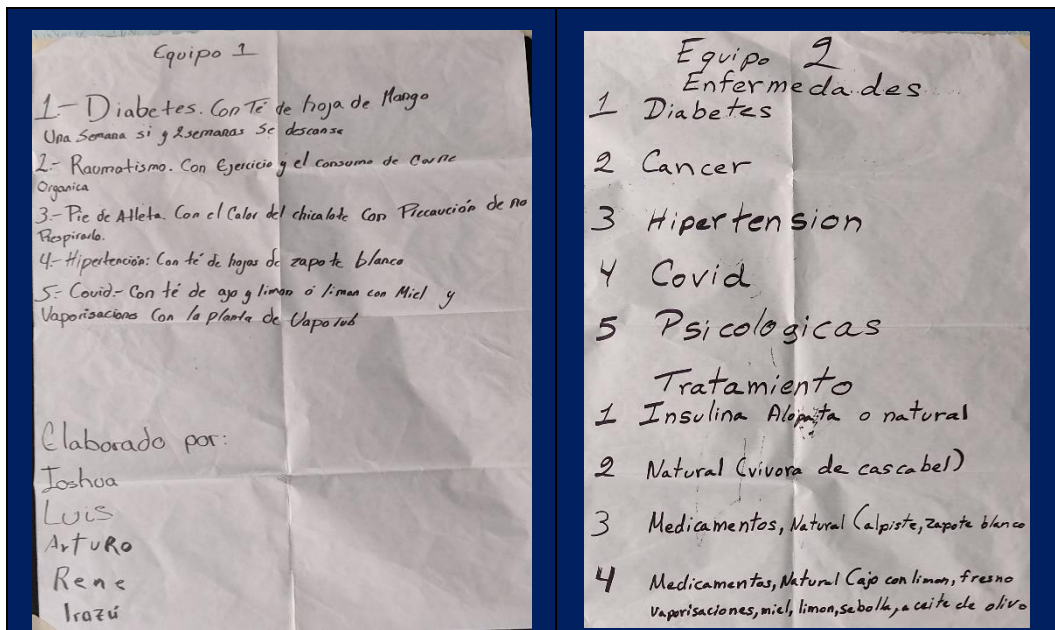 Equipo 1
1.- Diabetes. Con Té de hoja de Mango
Una Semana si y 2 semanas se descansa
2.- Raumatismo. Con Ejercicio y el consumo de Carne
Organica
3.- Pie de Atleta. Con el Calor del chicalote Con Precaución de no
Respirarlo.
4.- Hipertención: Con té de hojas de zapote blanco
5.- Covid.- Con té de ajo y limon ó limon con Miel y
Vaporisaciones Con la planta de Vaporub
Elaborado por:
Ioshua
Luis
ArtuRo
Rene
Irazú
Equipo 2
Enfermedades
1 Diabetes
2 Cancer
3 Hipertension
4 Covid
5 Psicologicas
Tratamiento
1 Insulina Alopata o natural
2 Natural (vivora de cascabel)
3 Medicamentos, Natural (alpiste, zapote blanco
4 Medicamentos, Natural (ajo con limon, fresno
vaporisaciones, miel, limon, sebolla, aceite de olivo